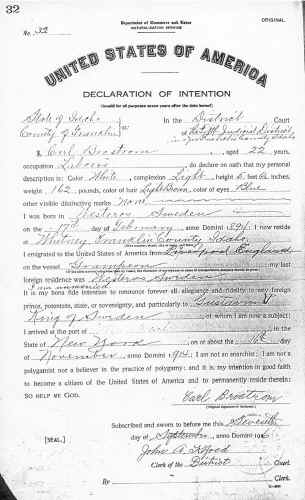 32
Department of Commerce and Labor
ORIGINAL
NATURALIZATION SERVICE
No. 32
UNITED STATES OF AMERICA
DECLARATION OF INTENTION
(Invalid for all purposes seven years after the date hereof)
State of Idaho
County of Franklin ss: In the District Court
of Judicial District
I, Carl Brostrom, aged 22 years,
occupation Laborer, do declare on oath that my personal
description is: Color White, complexion Light, height 5 feet 6½ inches,
weight 162 pounds, color of hair Light Brown, color of eyes Blue
other visible distinctive marks None
I was born in Sweden
on the 17th day of February, anno Domini 1894; I now reside
at Whitney, Franklin County, Idaho.
I emigrated to the United States of America from Liverpool England
on the vessel; my last
foreign residence was Sweden
I am unmarried
It is my bona fide intention to renounce forever all allegiance and fidelity to any foreign
prince, potentate, state, or sovereignty, and particularly to Gustavus V
King of Sweden, of whom I am now a subject;
I arrived at the port of
State of New York, on or about the day
of November, anno Domini 1914; I am not an anarchist; I am not a
polygamist nor a believer in the practice of polygamy; and it is my intention in good faith
to become a citizen of the United States of America and to permanently reside therein:
SO HELP ME GOD.
Carl Brostrom
(Original signature of declarant.)
Subscribed and sworn to before me this
[SEAL.] day of September, anno Domini 1916
John A.
Clerk of the District Court.
By, Clerk.